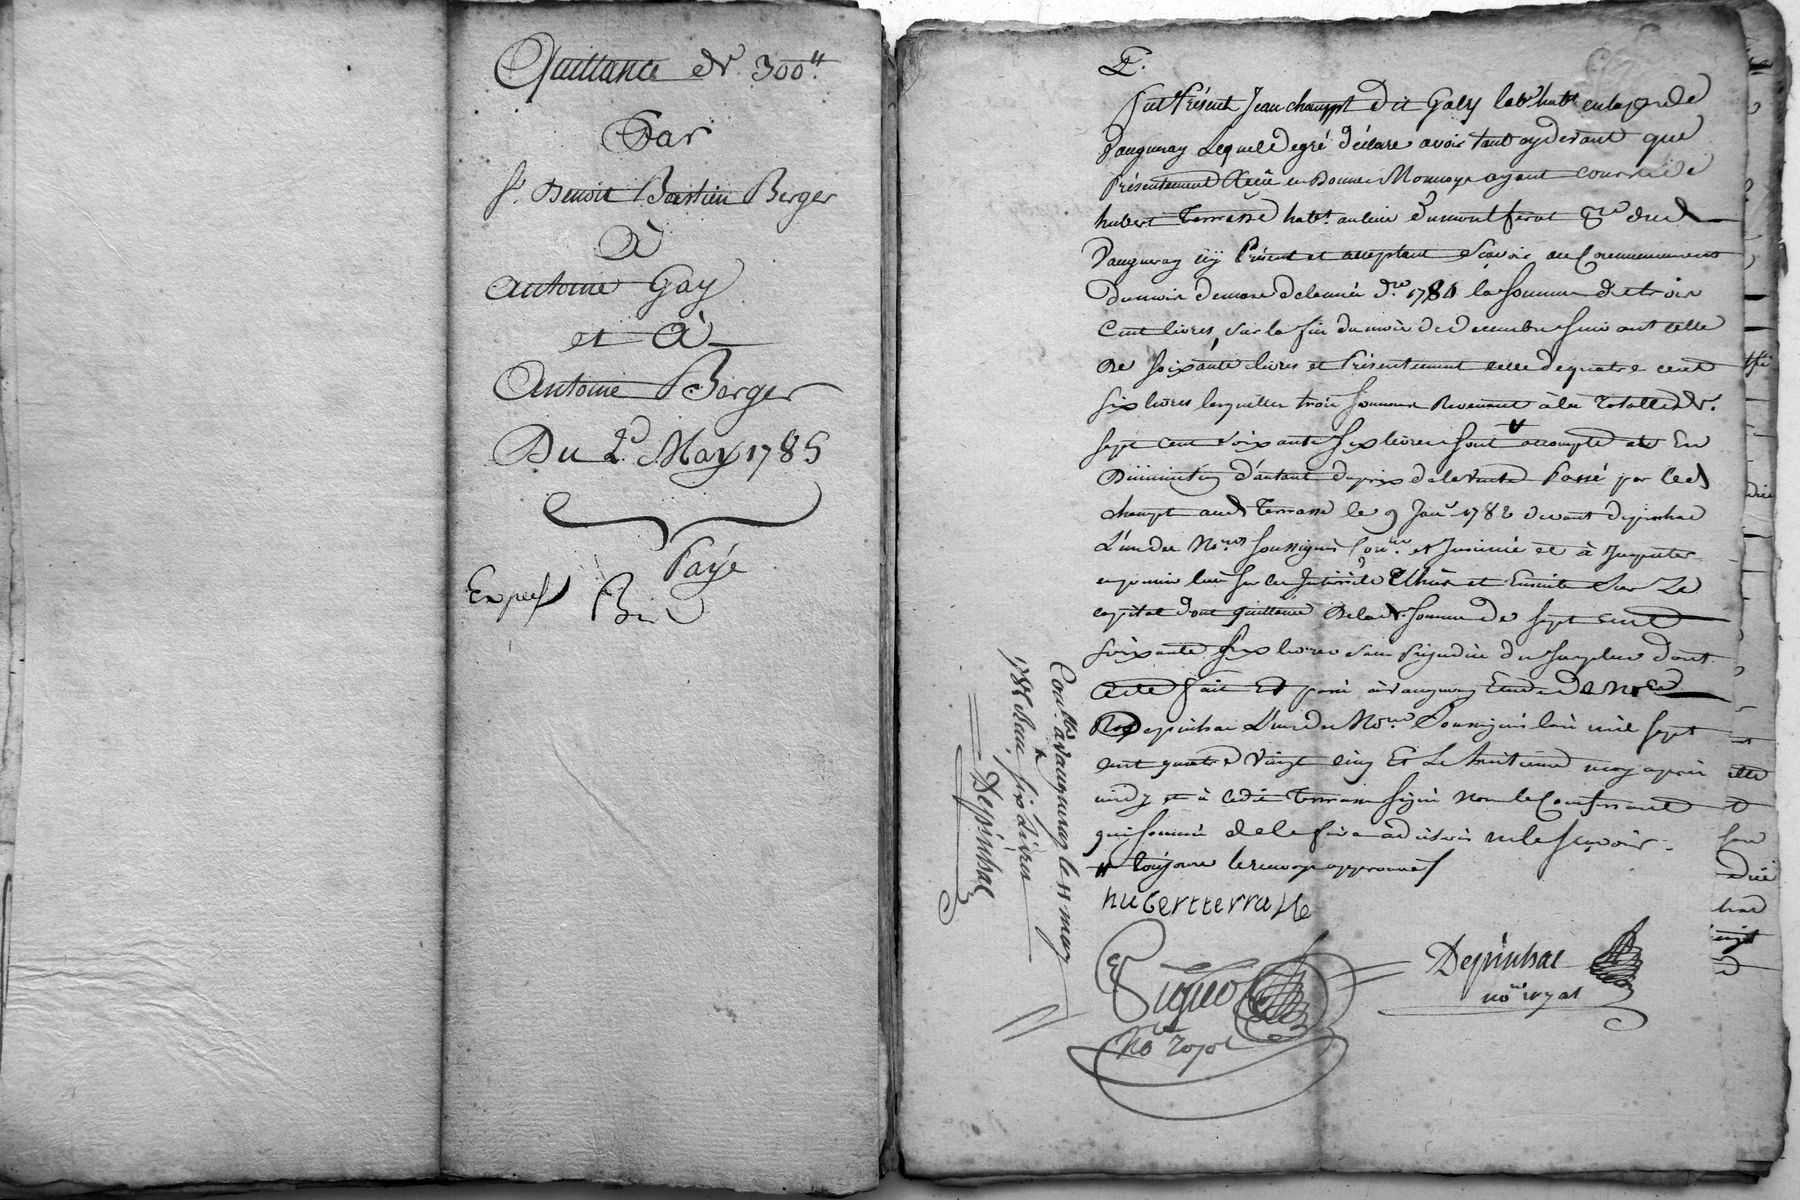 Quittance de 300ᵗᵗ
Par
Sʳ Benoit Bastien Berger
à
Antoine Gay
et à
Antoine Berger
Du 2ᵈ May 1785
Payé
Exped
fut Présent Jean champt dit Galy labʳ habᵗ en la psse de
Vaugneray Lequel de gré déclare avoir tant cy devant que
Présentement Receu en Bonne Monnoye ayant cours de
hubert Terrasse habᵗ au lieu du mont ferrat psse dud
Vaugneray icy Présent et acceptant Scavoir au Commencement
Du mois de mars de l'année dʳᵉ 1784 la Somme de trois
Cent livres, Sur la fin du mois de decembre Suivant celle
De Soixante livres et Présentement celle de quatre cent
Six livres lesquelles trois Sommes Revenant à la totalle de
Sept cent Soixante Six livres Sont accompte et En
Diminution d'autant du prix de la vente Passé par led
champt aud Terrasse le 9 Janʳ 1782 devant depinhac
L'un des Noʳᵉˢ Soussignés Conᵗʳ et Insinué et à Imputer
en premier lieu Sur les Interets Echus et Ensuite Sur Le
capital dont quittance De lad. Somme de Sept cent
Soixante Six livres Sans Préjudice du Surplus dont
Acte fait et passé à Vaugneray Etude de
Depinhac L'un des Noʳᵉˢ Soussignés l'an mil Sept
cent quatre Vingt cinq Et Le huitieme may après
midy et à ledit Terrasse Signé non le Confessant
qui Sommé de le faire a déclaré ne le Scavoir.
toujours le renvoy approuvé
hubertterrasse
Depinhac
noʳᵉ royal
Noʳᵉ royal
Conᵗˡᵉ à Vaugneray le 11 may
1785 Reçu Six livres
Depinhac